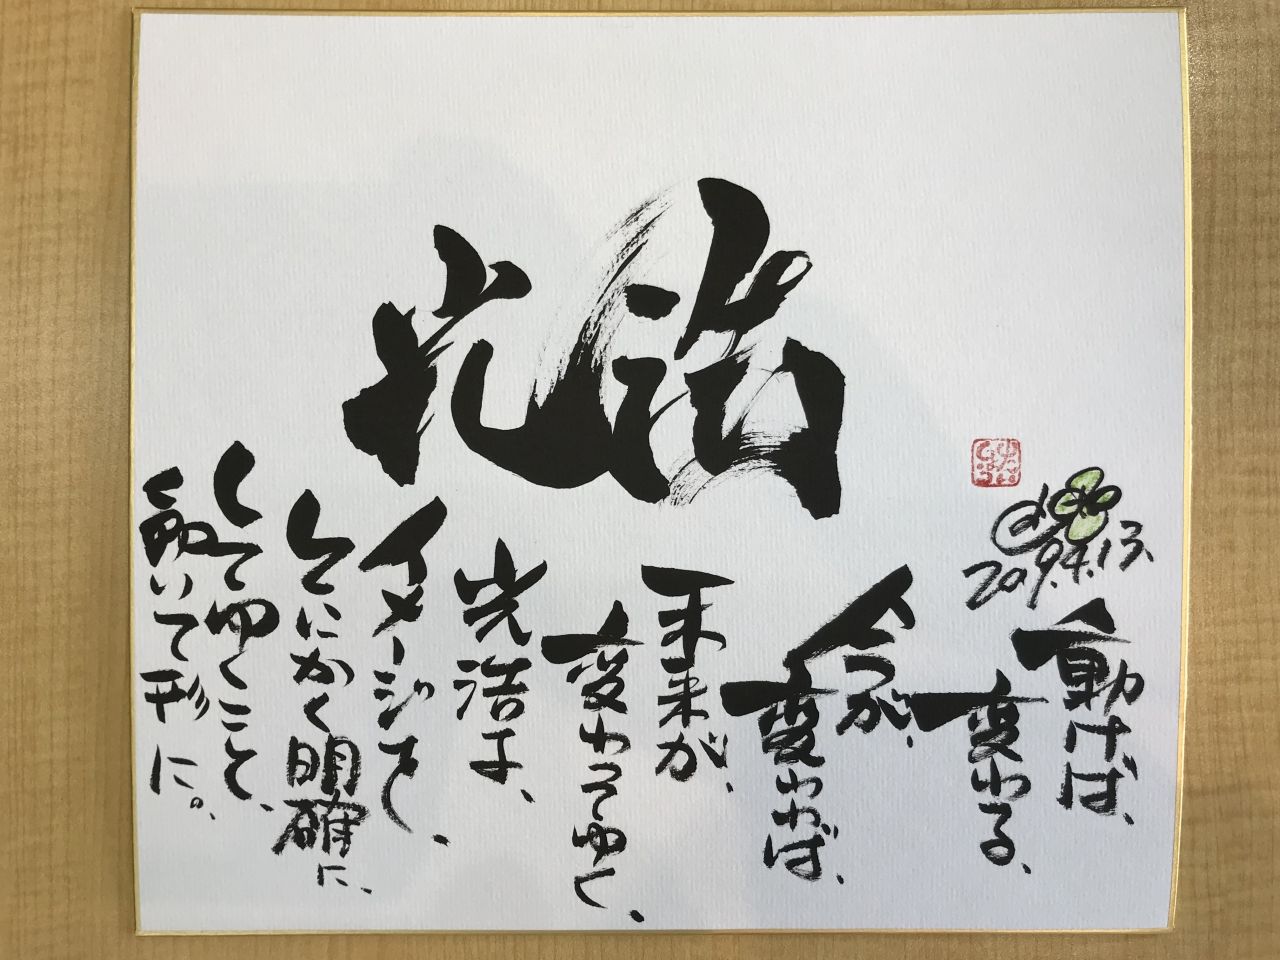 光浩
2019.4.13.
動けば、
変わる、
今が、
変われば、
未来が、
変わってゆく、
光浩よ、
イメージして、
とにかく明確に、
してゆくこと、
動いて形に。